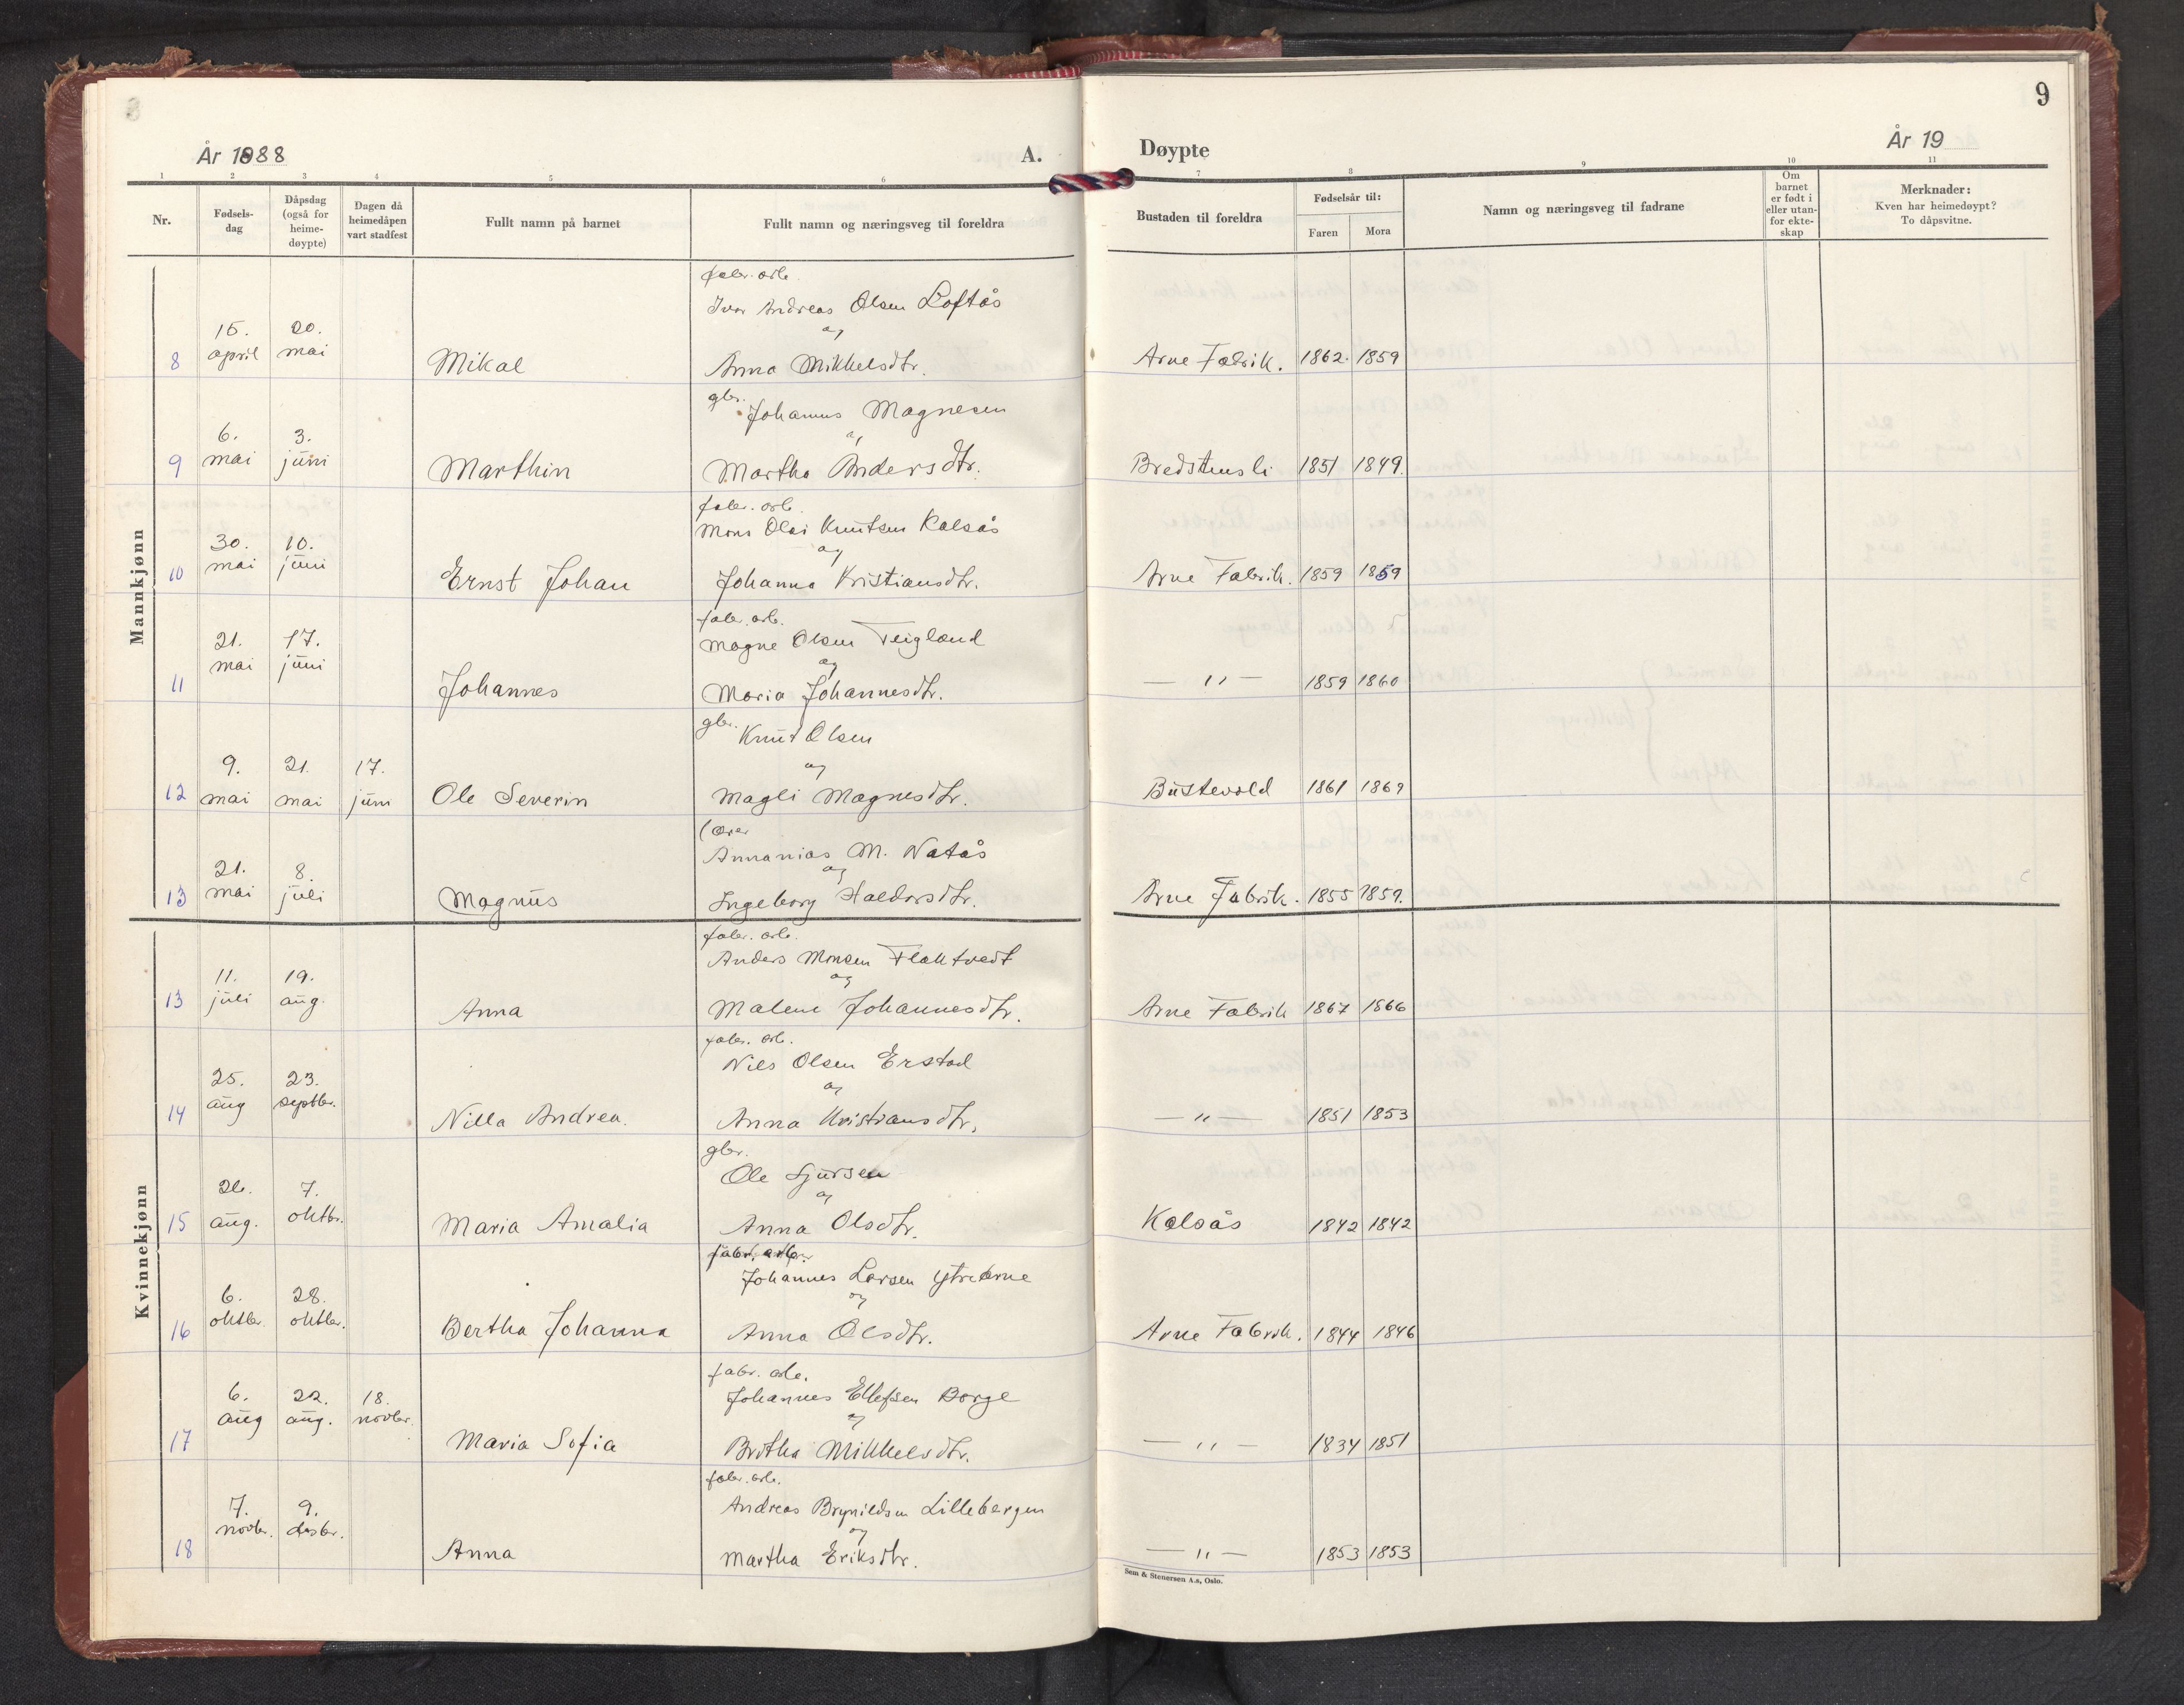 År 1888
A.
Døypte
År 19
9
1 2 3 4 5 6 7 8 9 10 11
Nr.
Fødsels-
dag
Dåpsdag
(også for
heime-
døypte)
Dagen då
heimedåpen
vart stadfest
Fullt namn på barnet
Fullt namn og næringsveg til foreldra
Bustaden til foreldra
Fødselsår til:
Faren Mora
Namn og næringsveg til fadrane
Om
barnet
er født i
eller utan-
for ekte-
skap
Merknader:
Kven har heimedøypt?
To dåpsvitne.
Mannkjønn
fabr. arb.
Ivar Andreas Olsen Loftås
15. 20. og
8 april mai Mikal Anna Mikkelsdtr. Arne Fabrik. 1862. 1859
gbr. Johannes Magnesen
6. 3. og
9 mai juni Marthin Martha Andersdtr. Bredstensli 1851 1849.
fabr. arb.
Mons Olai Knutsen Kalsås
30. 10. og
10 mai juni Ernst Johan Johanna Kristiansdtr. Arne Fabrik. 1859 1859
fabr. arb.
Magne Olsen Teigland
21. 17. og
11 mai juni Johannes Maria Johannesdtr. — " — 1859 1860
gbr. Knut Olsen
9. 21. 17. og
12 mai mai juni Ole Severin Magli Magnesdtr. Bustevold 1861 1869
lærer
Annanias M. Natås
21. 8. og
13 mai juli Magnus Ingeborg Haldorsdtr. Arne Fabrik. 1855 1859.
Kvinnekjønn
fabr. arb.
Anders Monsen Flaktvedt
11. 19. og
13 juli aug. Anna Malene Johannesdtr. Arne Fabrik 1867 1866
fabr. arb.
Nils Olsen Erstad
25. 23. og
14 aug septbr. Nilla Andrea. Anna Kristiansdtr. — " — 1851 1853
gbr.
Ole Sjursen
26. 7. og
15 aug. oktbr. Maria Amalia Anna Olsdtr. Kalsås 1842 1842
fabr. arb.
Johannes Larsen Ytrearne
6. 28. og
16 oktbr. oktbr. Bertha Johanna Anna Olsdtr. Arne Fabrik. 1844 1846
fabr. arb.
Johannes Ellefsen Borge
6. 22. 18. og
17 aug aug. novbr. Maria Sofia Britha Mikkelsdtr. — " — 1834 1851
fabr. arb.
Andreas Brynildsen Lillebergen
7. 9. og
18 novbr. desbr. Anna Martha Eriksdtr. — " — 1853 1853
Sem & Stenersen A.s, Oslo.